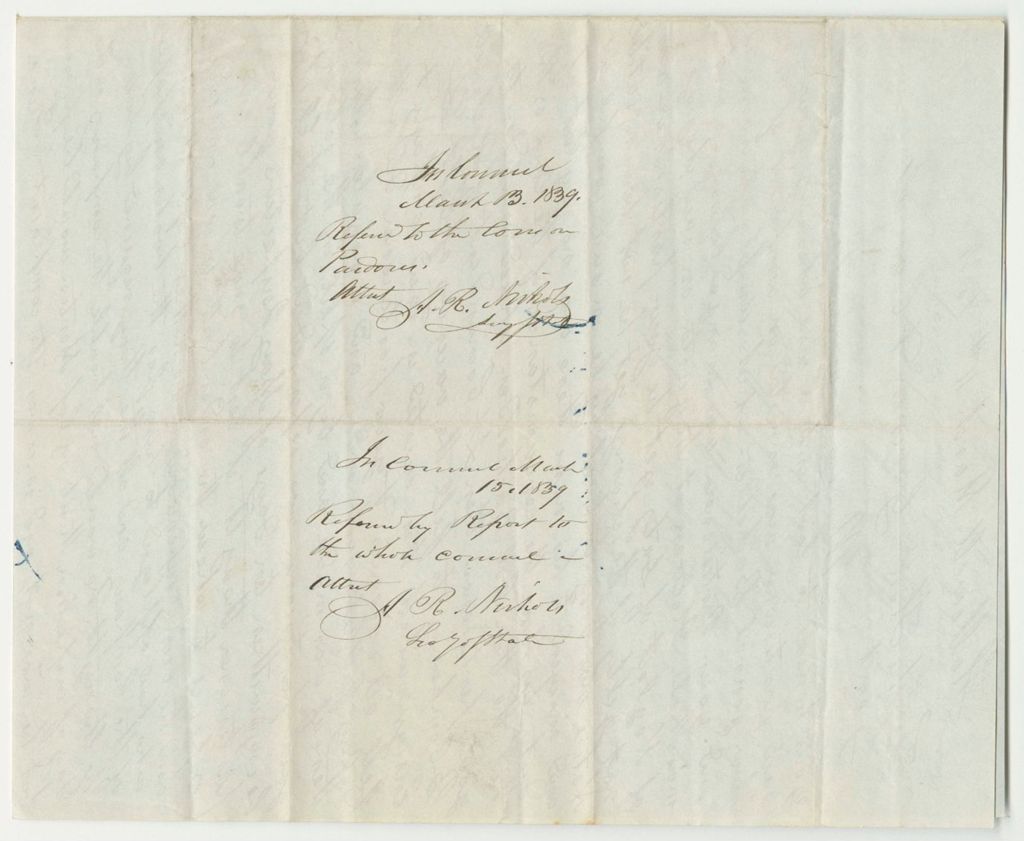 In Council
March 13. 1839.
Referred to the Com on
Pardons.
Attest
A. R. Nichols
Secy of State
In Council March
15, 1839
Referred by Report to
the whole council –
Attest
A R. Nichols
Secy of State